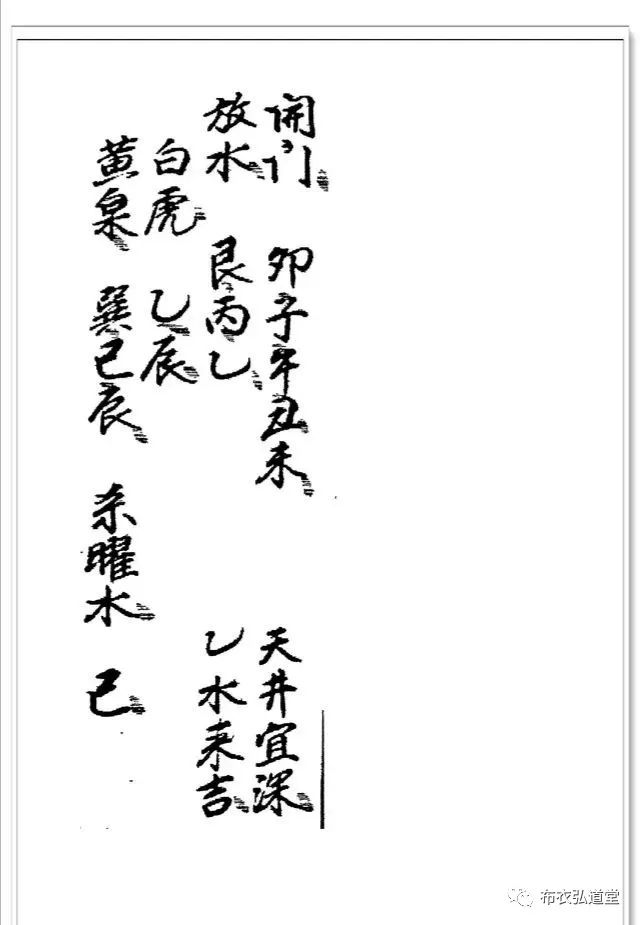 開门 卯子午丑未 天井宜深
放水 艮丙乙 乙水来吉
白虎 乙辰
黄泉 巽巳辰 杀曜水 巳
布衣弘道堂